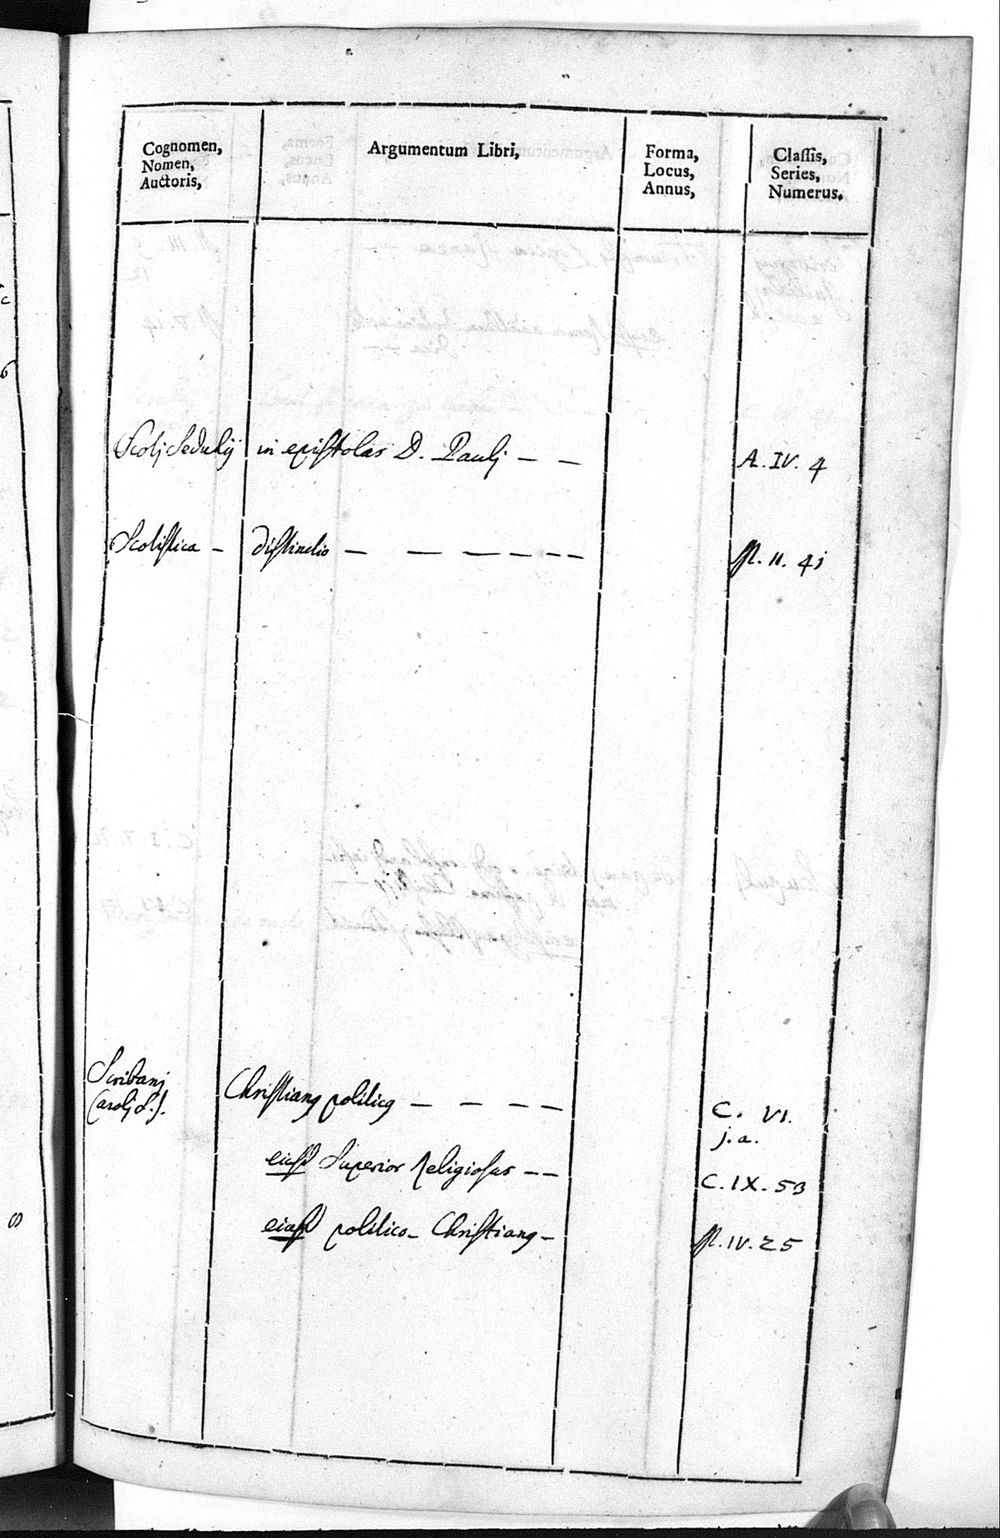 Cognomen,
Nomen,
Auctoris,
Argumentum Libri,
Forma,
Locus,
Annus,
Classis,
Series,
Numerus.
Scotj Sedulij in epistolas D. Paulj — — A. IV. 4
Scotistica — distinctio — — — — — — II. 4j
Scribanj
Carolj S.J. Christiang politicg — — — — C. VI.
j.a.
eiusd Superior Religiosus — — C. IX. 53
eiusd politico- Christiang — IV. 25